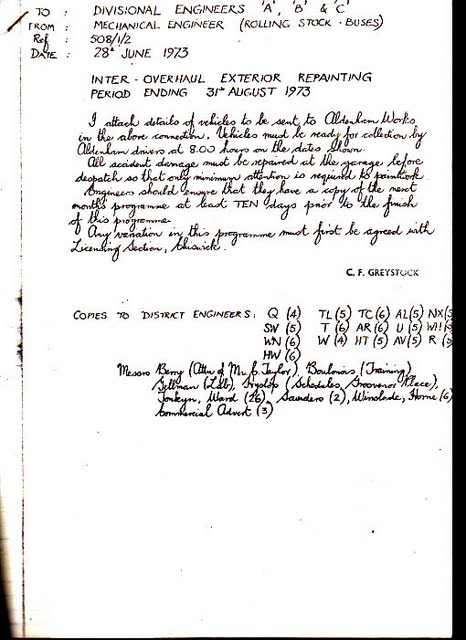 TO : DIVISIONAL ENGINEERS 'A', 'B' & 'C'
FROM : MECHANICAL ENGINEER (ROLLING STOCK - BUSES)
Ref : 508/1/2
DATE : 28th JUNE 1973
INTER-OVERHAUL EXTERIOR REPAINTING
PERIOD ENDING 31st AUGUST 1973
I attach details of vehicles to be sent to Aldenham Works
in the above connection. Vehicles must be ready for collection by
Aldenham drivers at 8.00 hours on the dates shown.
All accident damage must be repaired at the garage before
despatch so that only minimum attention is required to paintwork.
Engineers should ensure that they have a copy of the next
month's programme at least TEN days prior to the finish
of this programme.
Any variation in this programme must first be agreed with
Licensing Section, Chiswick.
C. F. GREYSTOCK
COPIES TO DISTRICT ENGINEERS: Q (4) TL (5) TC (6) AL (5) NX (5
SW (5) T (6) AR (6) U (5) WH (
WN (6) W (4) HT (5) AV (5) R (
HW (6)
Messrs Berry (Attn of Mr. Taylor) (Training)
(Lab), (Schedules, Grosvenor Place),
Ward (26), Saunders (2), Winslade, Horne (6)
Commercial Advert (3)